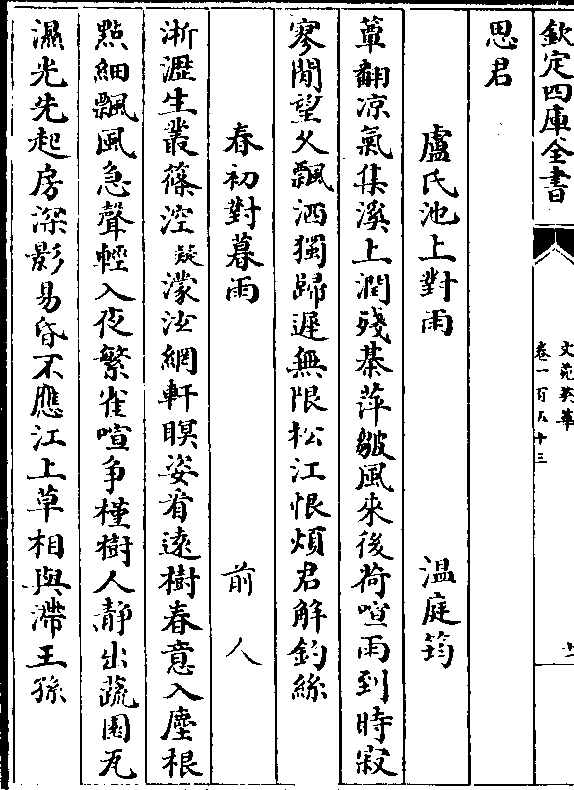 欽定四庫全書
文苑英華
卷一百五十三
思君
盧氏池上對雨　温庭筠
簟翻凉氣集溪上潤殘棊萍皺風來後荷喧雨到時寂
寥閒望久飄洒獨歸遲無限松江恨煩君解釣絲
春初對暮雨　前人
淅瀝生叢篠涳疑濛泫網軒暝姿看遠樹春意入塵根
點細飄風急聲輕入夜繁雀喧争槿樹人靜出蔬園瓦
濕光先起房深影易昏不應江上草相與滯王孫